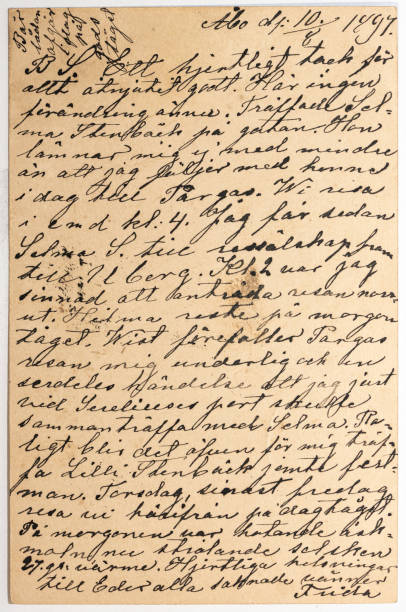 Åbo d. 10/8 1897.
B. S. Ett hjertligt tack för
allt åtnjutet godt. Har ingen
förändring ännu. Träffade Sel-
ma Stenbäck på gatan. Hon
lämnar mig ej med mindre
än att jag följer med henne
i dag till Pargas. Vi resa
i em d kl. 4. Jag får sedan
Selma S. till ressälskap fram
till Uberg. Kl. 2 var jag
sinnad att anträda resan norr-
ut. Helma reste på morgon
tåget. Wist förefaller Pargas
resan mig underlig och en
serdeles händelse att jag just
vid port skulle
sammanträffa med Selma. Ro-
ligt blir det äfven för mig träf-
fa Lilli Stenbäck jemte fäst-
man. Torsdag, sinast fredag
resa vi härifrån på daghåget.
På morgonen var hotande åsk-
moln nu strålande solsken
27 gr. värme. Hjertliga helsningar
till Eder alla saknade vänner